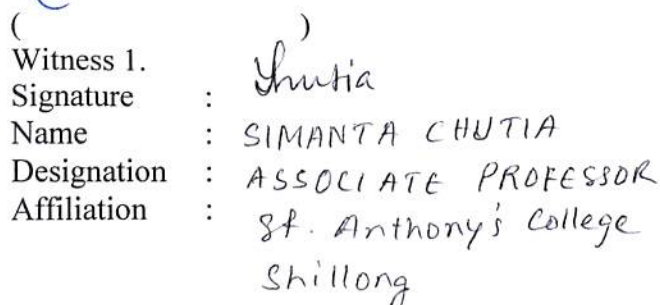 ( )
Witness 1.
Signature : Chutia
Name : SIMANTA CHUTIA
Designation : ASSOCIATE PROFESSOR
Affiliation : St. Anthony's College
Shillong